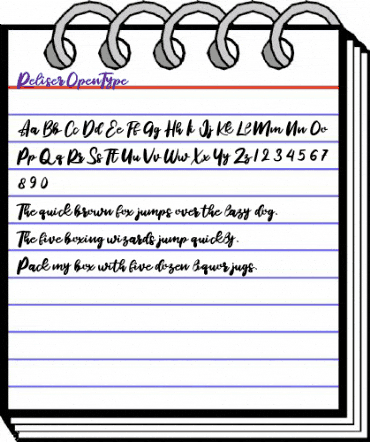 Reliser OpenType
Aa Bb Cc Dd Ee Ff Gg Hh Ii Jj Kk Ll Mm Nn Oo
Pp Qq Rr Ss Tt Uu Vv Ww Xx Yy Zz 1 2 3 4 5 6 7
8 9 0
The quick brown fox jumps over the lazy dog.
The five boxing wizards jump quickly.
Pack my box with five dozen liquor jugs.